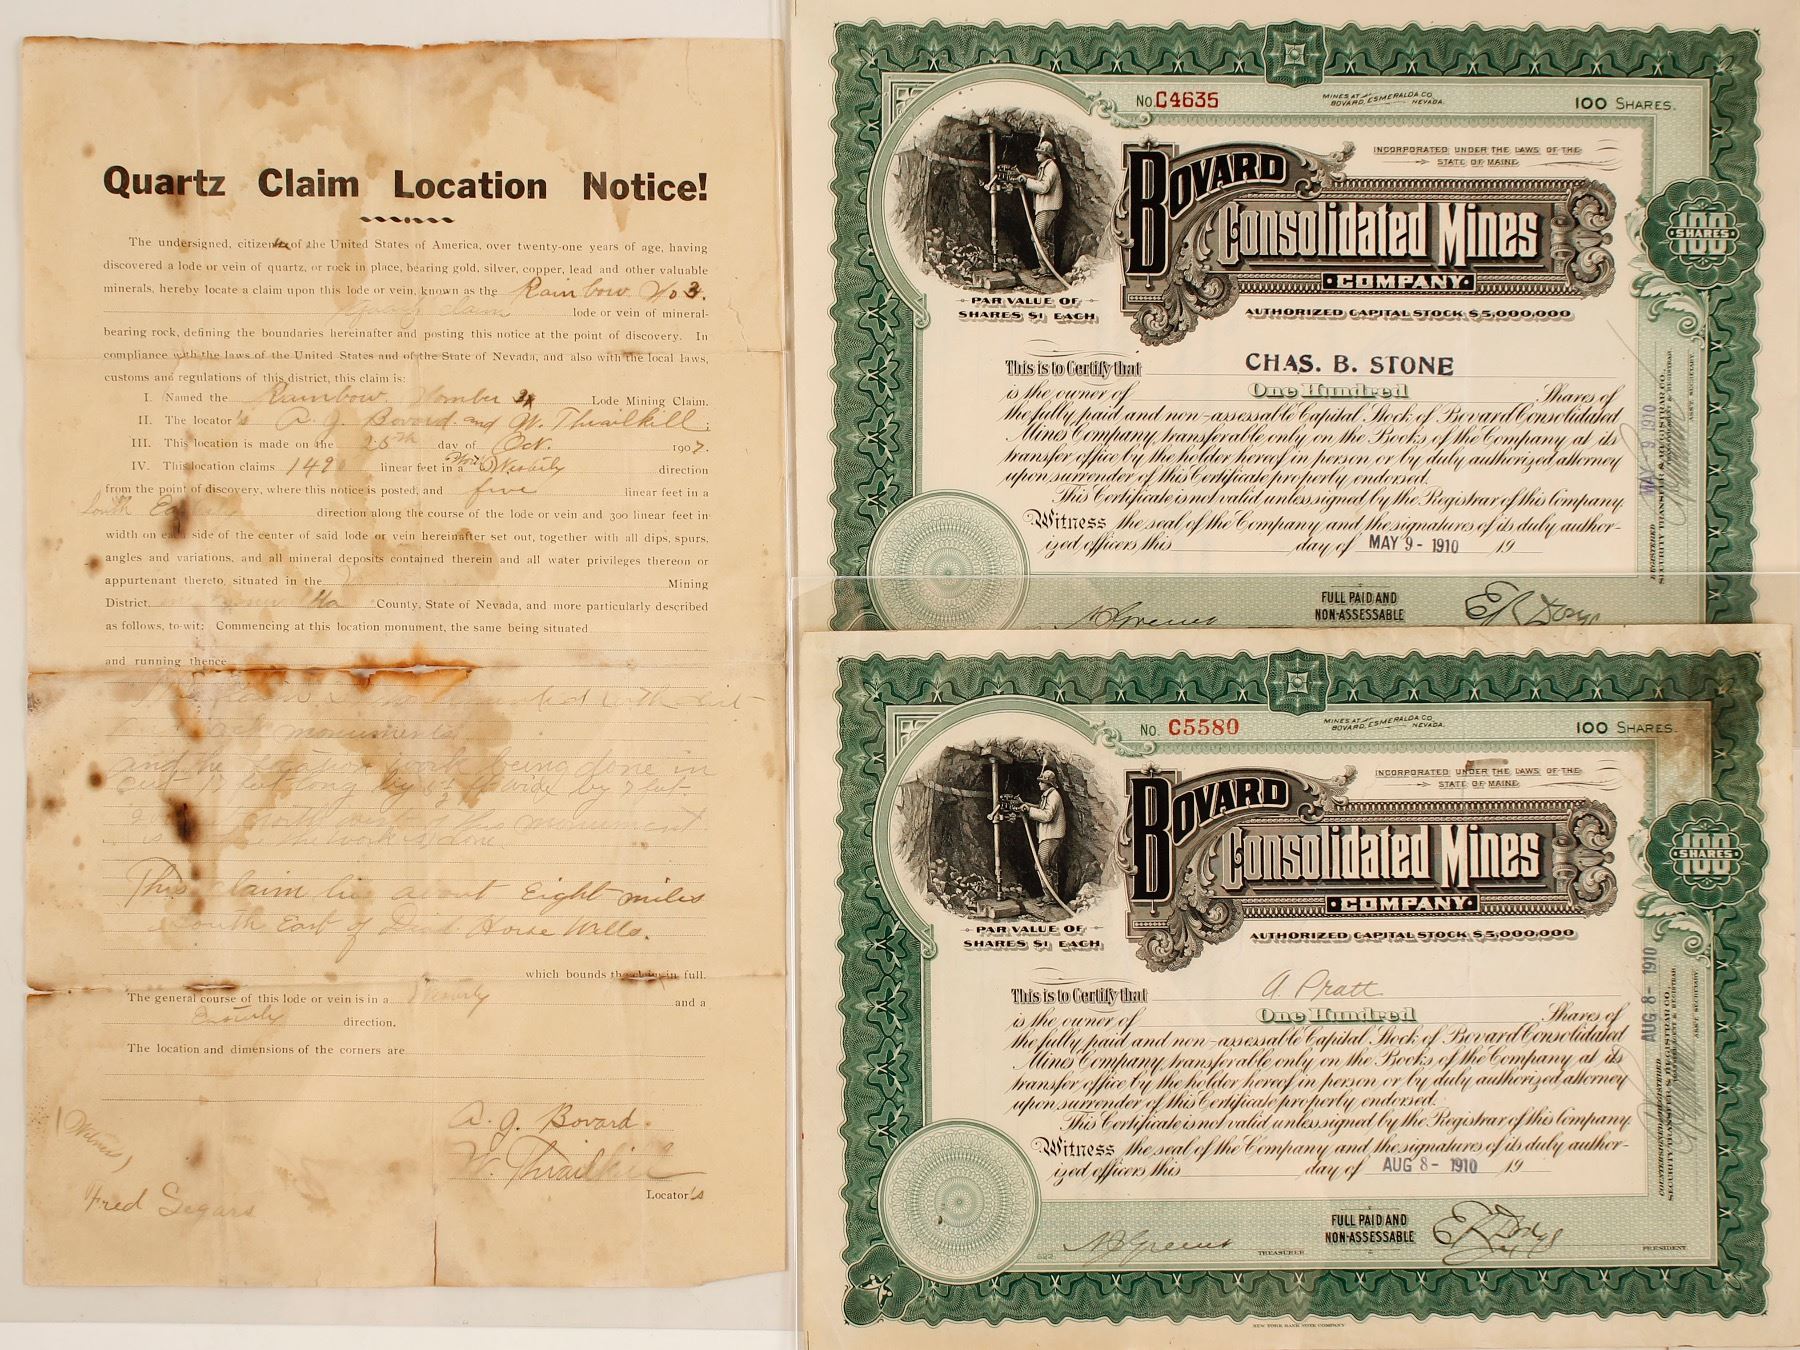 Quartz Claim Location Notice!
The undersigned, citizens of the United States of America, over twenty-one years of age, having
discovered a lode or vein of quartz, or rock in place, bearing gold, silver, copper, lead and other valuable
minerals, hereby locate a claim upon this lode or vein, known as the Rainbow No 3.
claim lode or vein of mineral-
bearing rock, defining the boundaries hereinafter and posting this notice at the point of discovery. In
compliance with the laws of the United States and of the State of Nevada, and also with the local laws,
customs and regulations of this district, this claim is:
I. Named the Rainbow Number 3 Lode Mining Claim.
II. The locator's A. J. Bovard and W. Thrailkill;
III. This location is made on the 26th day of Oct. 1907.
IV. This location claims 149 linear feet in a Westerly direction
from the point of discovery, where this notice is posted, and five linear feet in a
South direction along the course of the lode or vein and 300 linear feet in
width on each side of the center of said lode or vein hereinafter set out, together with all dips, spurs,
angles and variations, and all mineral deposits contained therein and all water privileges thereon or
appurtenant thereto, situated in the Mining
District, County, State of Nevada, and more particularly described
as follows, to-wit: Commencing at this location monument, the same being situated
and running thence
monuments
and the location work being done in
cut feet long by wide by
monument
is the work is done.
This claim lies about Eight miles
South East of Dead Horse Wells.
which bounds the claim in full.
The general course of this lode or vein is in a Westerly and a
Easterly direction.
The location and dimensions of the corners are
A. J. Bovard.
W. Thrailkill
Locator's
(Witness)
Fred Segars
No. C4635
MINES AT
BOVARD, ESMERALDA CO.
NEVADA.
100 SHARES.
INCORPORATED UNDER THE LAWS OF THE
STATE OF MAINE
BOVARD
Consolidated Mines
COMPANY
100
SHARES
100
PAR VALUE OF
SHARES $1 EACH
AUTHORIZED CAPITAL STOCK $5,000,000
This is to Certify that CHAS. B. STONE
is the owner of One Hundred Shares of
the fully paid and non-assessable Capital Stock of Bovard Consolidated
Mines Company, transferable only on the Books of the Company at its
transfer office by the holder hereof in person or by duly authorized attorney
upon surrender of this Certificate properly endorsed.
This Certificate is not valid unless signed by the Registrar of this Company.
Witness the seal of the Company and the signatures of its duly author-
ized officers this day of MAY 9 - 1910 19
FULL PAID AND
NON-ASSESSABLE
MAY -9 1910
REGISTERED
SECURITY TRANSFER & REGISTRAR CO.,
TRANSFER AGENT & REGISTRAR
ASST. SECRETARY.
No. C5580
MINES AT
BOVARD, ESMERALDA CO.
NEVADA.
100 SHARES.
INCORPORATED UNDER THE LAWS OF THE
STATE OF MAINE
BOVARD
Consolidated Mines
COMPANY
100
SHARES
100
PAR VALUE OF
SHARES $1 EACH
AUTHORIZED CAPITAL STOCK $5,000,000
This is to Certify that A. Pratt
is the owner of One Hundred Shares of
the fully paid and non-assessable Capital Stock of Bovard Consolidated
Mines Company, transferable only on the Books of the Company at its
transfer office by the holder hereof in person or by duly authorized attorney
upon surrender of this Certificate properly endorsed.
This Certificate is not valid unless signed by the Registrar of this Company.
Witness the seal of the Company and the signatures of its duly author-
ized officers this day of AUG 8 - 1910 19
FULL PAID AND
NON-ASSESSABLE
TREASURER
PRESIDENT
AUG 8 - 1910
COUNTERSIGNED & REGISTERED
SECURITY TRANSFER & REGISTRAR CO.,
TRANSFER AGENT & REGISTRAR
ASST. SECRETARY.
NEW YORK BANK NOTE COMPANY